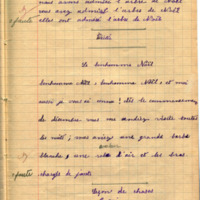 nous avons admiré l'arbre de Noël
vous avez admiré l'arbre de Noël
elles ont admiré l'arbre de Noël
Dictée
Le bonhomme Noël
bonhomme Noël, bonhomme Noël, et moi
aussi je vous ai vu ! dès le commencement
de décembre vous vous rendez visite toutes
les nuits ; vous aviez une grande barbe
blanche, une et les bras
chargés de jouets
Leçon de choses